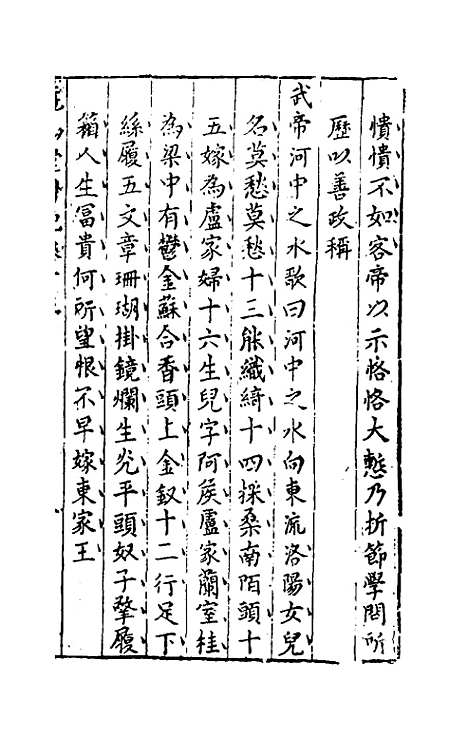 憒憒不如客帝以示恪恪大慙乃折節學問所
歷以善政稱
武帝河中之水歌曰河中之水向東流洛陽女兒
名莫愁莫愁十三能織綺十四採桑南陌頭十
五嫁為盧家婦十六生兒字阿矦盧家蘭室桂
為梁中有鬱金蘇合香頭上金釵十二行足下
絲履五文章珊瑚掛鏡爛生光平頭奴子擎履
箱人生冨貴何所望恨不早嫁東家王